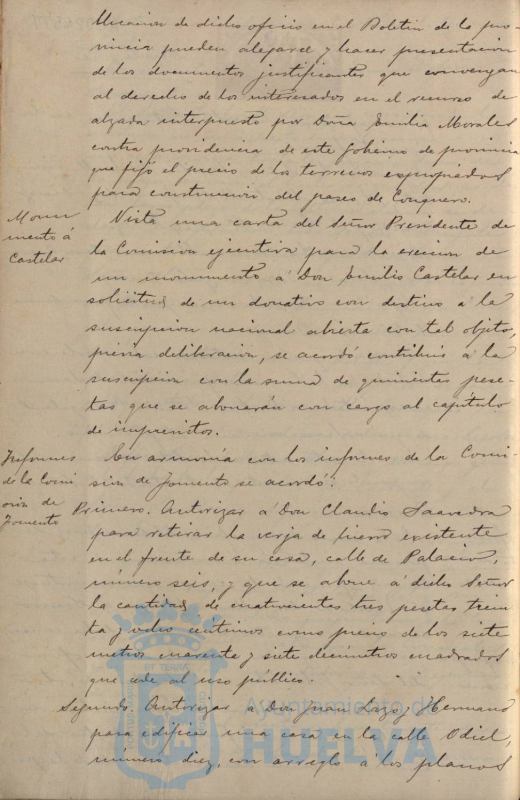 blicación de dicho oficio en el Boletin de la pro-
vincia pueden alegarse y hacer presentacion
de los documentos justificantes que convengan
al derecho de los interesados en el recurso de
alzada interpuesto por Doña Emilia Morales
contra providencia de este Gobierno de provincia
que fijó el precio de los terrenos expropiados
para construccion del paseo de Conquero.
Monu
mento á
Castelar
Vista una carta del Señor Presidente de
la Comision ejecutiva para la ereccion de
un monumento á Don Emilio Castelar en
solicitud de un donativo con destino á la
suscripcion nacional abierta con tal objeto,
previa deliberacion, se acordó contribuir á la
suscripcion con la suma de quinientas pese-
tas que se abonarán con cargo al capítulo
de imprevistos.
Informes
de la Comi
sion de
Fomento
En armonía con los informes de la Comi-
sion de Fomento se acordó:
Primero. Autorizar á Don Claudio Saavedra
para retirar la verja de hierro existente
en el frente de su casa, calle de Palacio,
número seis, y que se abone á dicho Señor
la cantidad de cuatrocientas tres pesetas trein
ta y ocho céntimos como precio de los siete
metros cuarenta y siete decímetros cuadrados
que cede al uso público.
Segundo. Autorizar á Don Juan Lazo y Hermano
para edificar una casa en la calle Odiel,
número diez, con arreglo á los planos
Ayuntamiento de
HUELVA